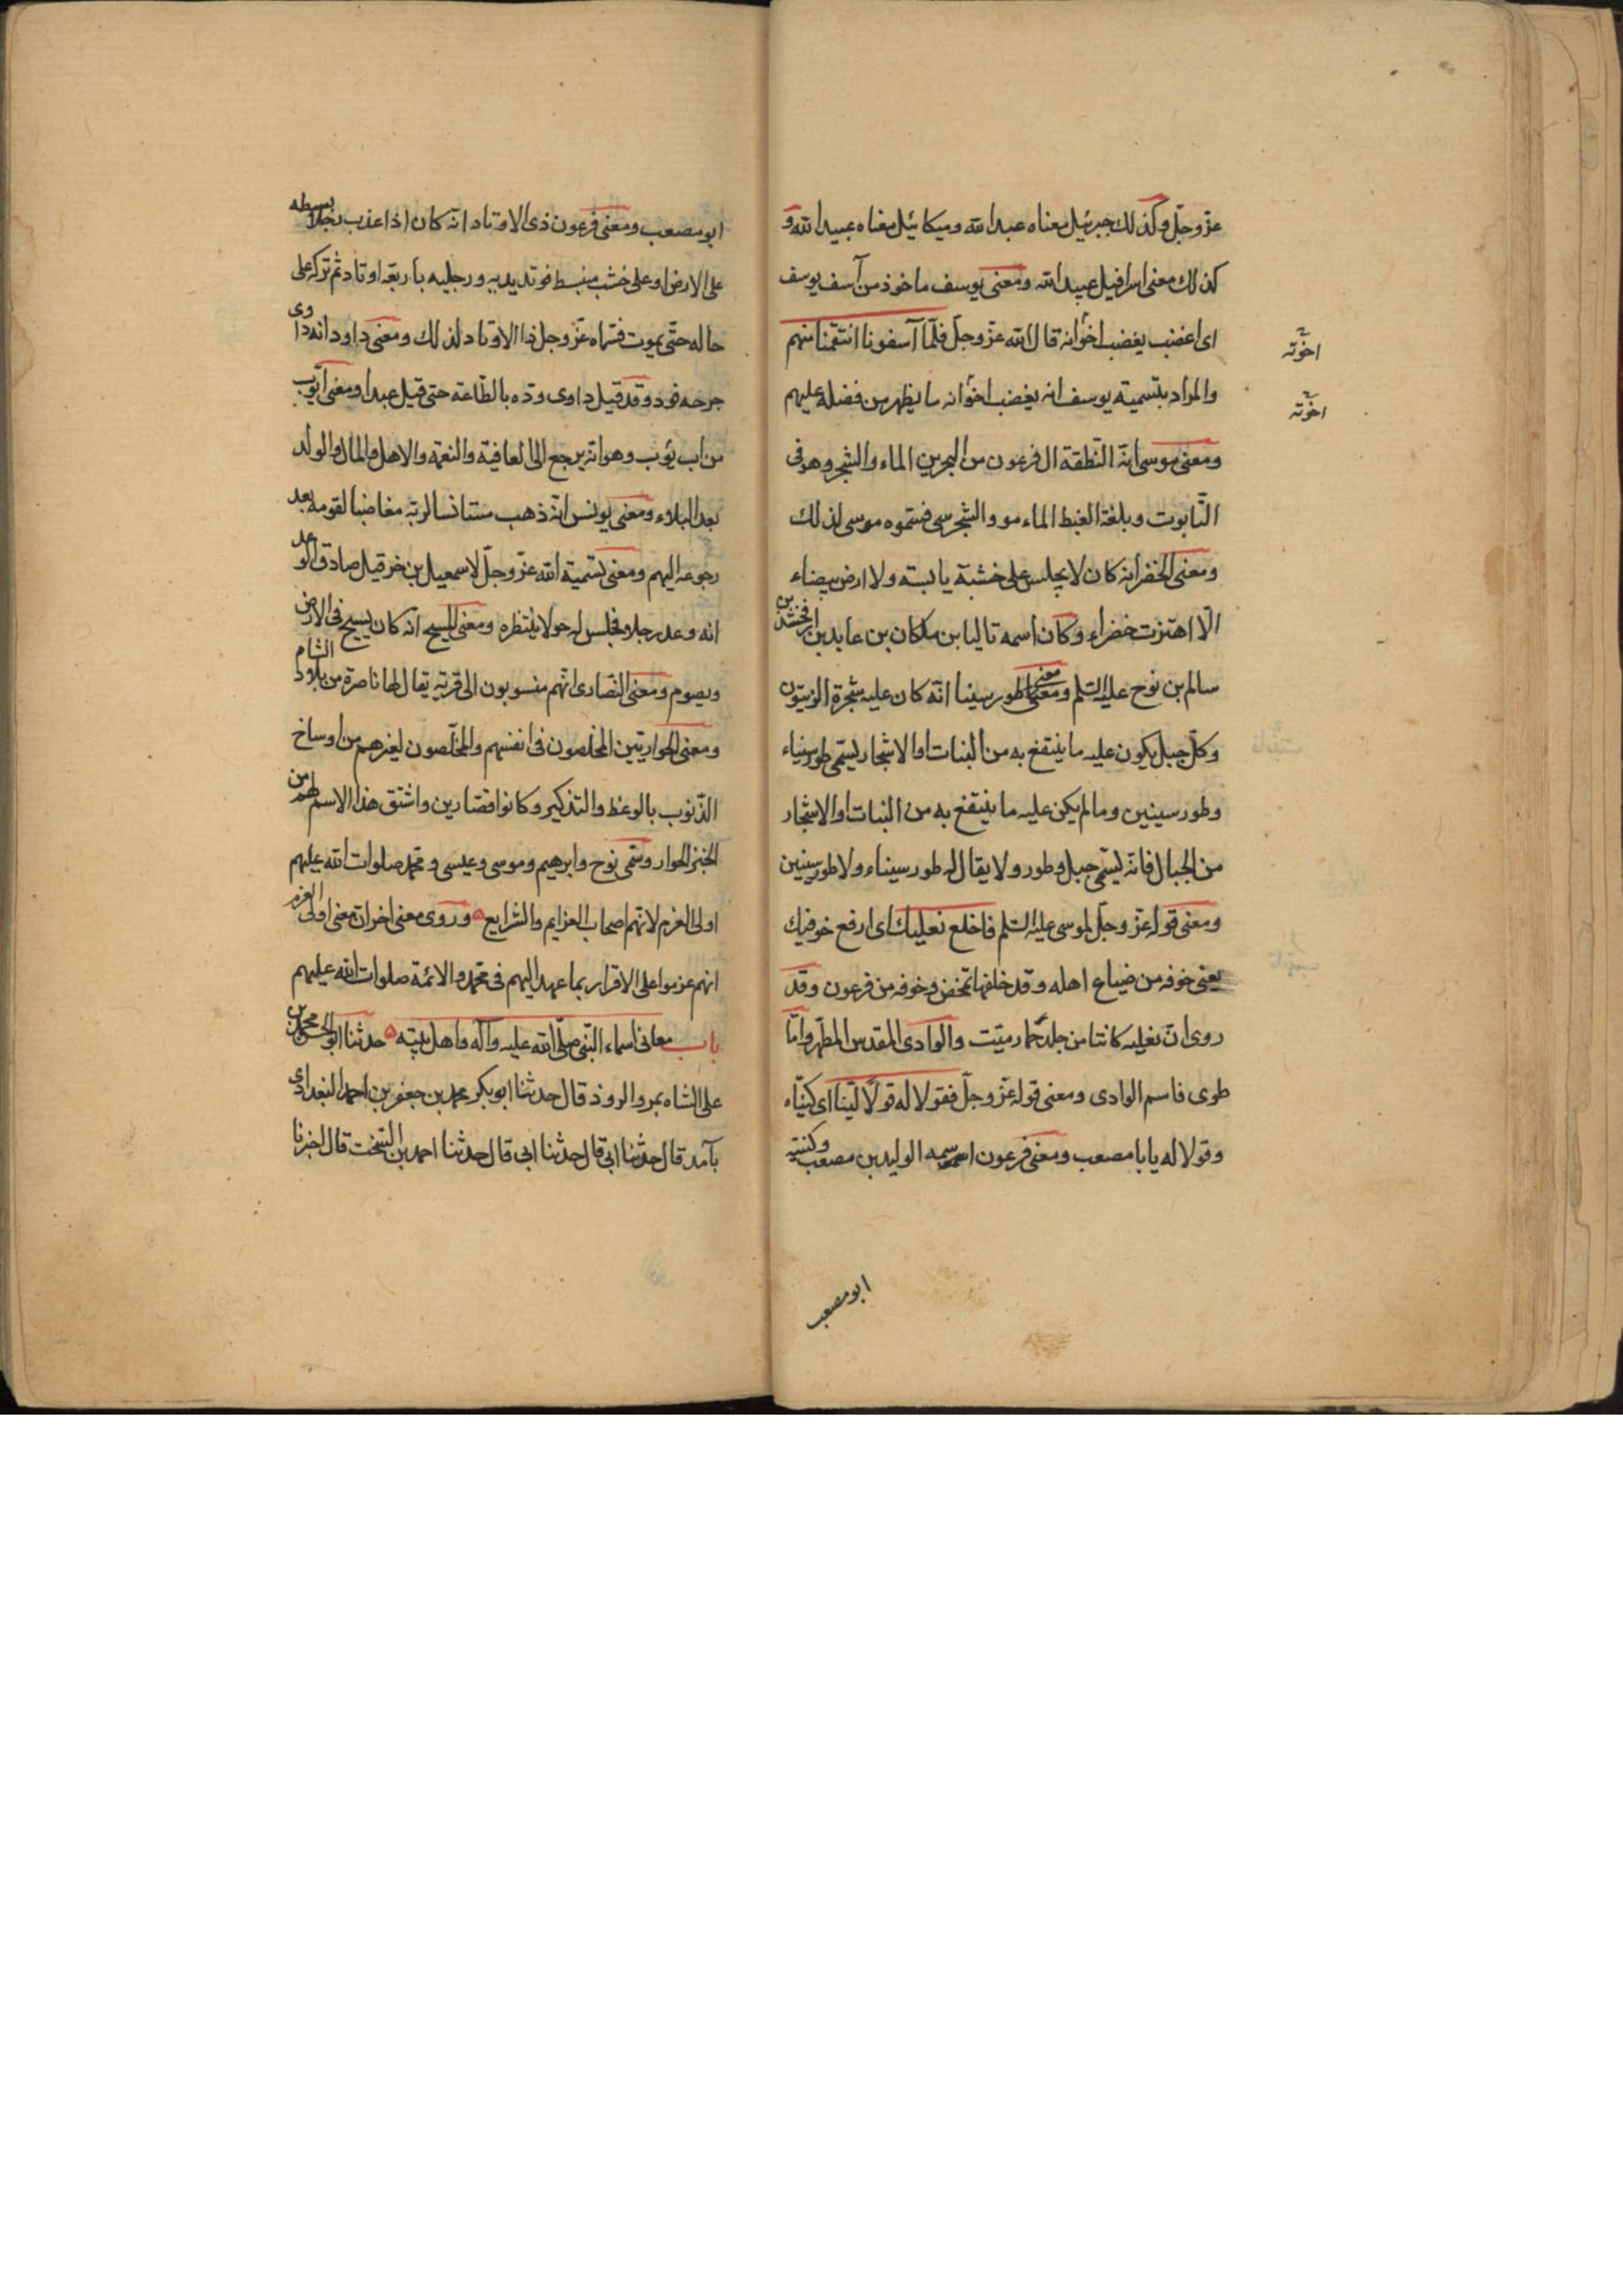 عزّ وجلّ وكذلك جبرئيل معناه عبد الله وميكائيل معناه عبيد الله و
كذلك معنى اسرافيل عبيد الله ومعنى يوسف ماخوذ من آسف يوسف
اى اغضب يغضب اخوانه قال الله عزّ وجلّ فلمّا آسفونا انتقمنا منهم
اخوته
والمراد بتسميته يوسف انه يغضب اخوانه ما يظهر من فضله عليهم
اخوته
ومعنى موسى انه التقطه ال فرعون من البحر بين الماء والشجر وهو فى
التّابوت وبلغة القبط الماء مو والشجر سى فسمّوه موسى لذلك
ومعنى الخضر انه كان لا يجلس على خشبة يابسة ولا ارض بيضاء
الّا اهتزت خضراء وكان اسمه تاليا بن ملكان بن عابد بن ارفخشد بن
سالم بن نوح عليه السلم ومعنى طور سينا انّه كان عليه شجرة الزيتون
وكلّ جبل يكون عليه ما ينتفع به من النبات او الاشجار يسمّى طور سيناء
وطور سينين وما لم يكن عليه ما ينتفع به من النبات او الاشجار
من الجبال فانّه يسمّى جبل وطور ولا يقال له طور سيناء ولا طور سينين
ومعنى قوله عزّ وجلّ لموسى عليه السلم فاخلع نعليك اى ارفع خوفيك
يعنى خوفه من ضياع اهله وقد خلفها تمخض وخوفه من فرعون وقد
روى انّ نعليه كانتا من جلد حمار ميّت والوادى المقدس المطهّر وامّا
طوى فاسم الوادى ومعنى قوله عزّ وجلّ فقولا له قولًا ليّنا اى كنّياه
وقولا له يا با مصعب ومعنى فرعون اسمه الوليد بن مصعب وكنيته
ابو مصعب
ابو مصعب ومعنى فرعون ذى الاوتاد انه كان اذا عذب رجلا بسطه
على الارض او على خشب منبسط فوتد يديه ورجليه باربعة اوتاد ثم تركه على
حاله حتّى يموت فسمّاه عزّ وجل ذا الاوتاد لذلك ومعنى داود انه داوى
جرحه فود وقد قيل داوى ودّه بالطّاعة حتى قيل عبدا ومعنى ايّوب
من اب يؤب وهو انه يرجع الى العافية والنعمة والاهل والمال والولد
بعد البلاء ومعنى يونس انّه ذهب مستانسا لربّه مغاضبا لقومه بعد
رجوعه اليهم ومعنى تسمية الله عزّ وجلّ لاسمعيل بن حزقيل صادق الوعد
انه وعد رجلا فجلس له حولا ينتظره ومعنى المسيح انه كان يسيح فى الارض
ويصوم ومعنى النّصارى انّهم منسوبون الى قرية يقال لها ناصرة من بلاد الشام
ومعنى الحواريّين المخلصون فى انفسهم والمخلّصون لغيرهم من اوساخ
الذّنوب بالوعظ والتذكير وكانوا قصّارين واشتق هذا الاسم لهم من
الخبز الحوار وسمّى نوح وابرهيم وموسى وعيسى ومحمّد صلوات الله عليهم
اولى العزم لانّهم اصحاب العزايم والشرايع ه وروى معنى اخر ان معنى اولى العزم
انهم عزموا على الاقرار بما عهد اليهم فى محمّد والائمّة صلوات الله عليهم
باب معانى اسماء النّبى صلّى الله عليه وآله واهل بيته ه حدثنا ابو الحسن محمد بن
على الشاه بمرو الروذ قال حدثنا ابو بكر محمد بن جعفر بن احمد البغدادى
بآمد قال حدثنا ابى قال حدثنا ابى قال حدثنا احمد بن السخت قال اخبرنا